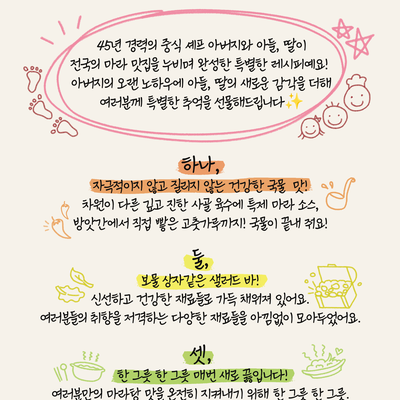 45년 경력의 중식 셰프 아버지와 아들, 딸이
전국의 마라 맛집을 누비며 완성한 특별한 레시피예요!
아버지의 오랜 노하우에 아들, 딸의 새로운 감각을 더해
여러분께 특별한 추억을 선물해드립니다✨
하나,
자극적이지 않고 질리지 않는 건강한 국물 맛!
차원이 다른 깊고 진한 사골 육수에 특제 마라 소스,
방앗간에서 직접 빻은 고춧가루까지! 국물이 끝내 줘요!
둘,
보물 상자같은 샐러드 바!
신선하고 건강한 재료들로 가득 채워져 있어요.
여러분들의 취향을 저격하는 다양한 재료들을 아낌없이 모아두었어요.
셋,
한 그릇 한 그릇 매번 새로 끓입니다!
여러분만의 마라탕 맛을 온전히 지켜내기 위해 한 그릇 한 그릇,